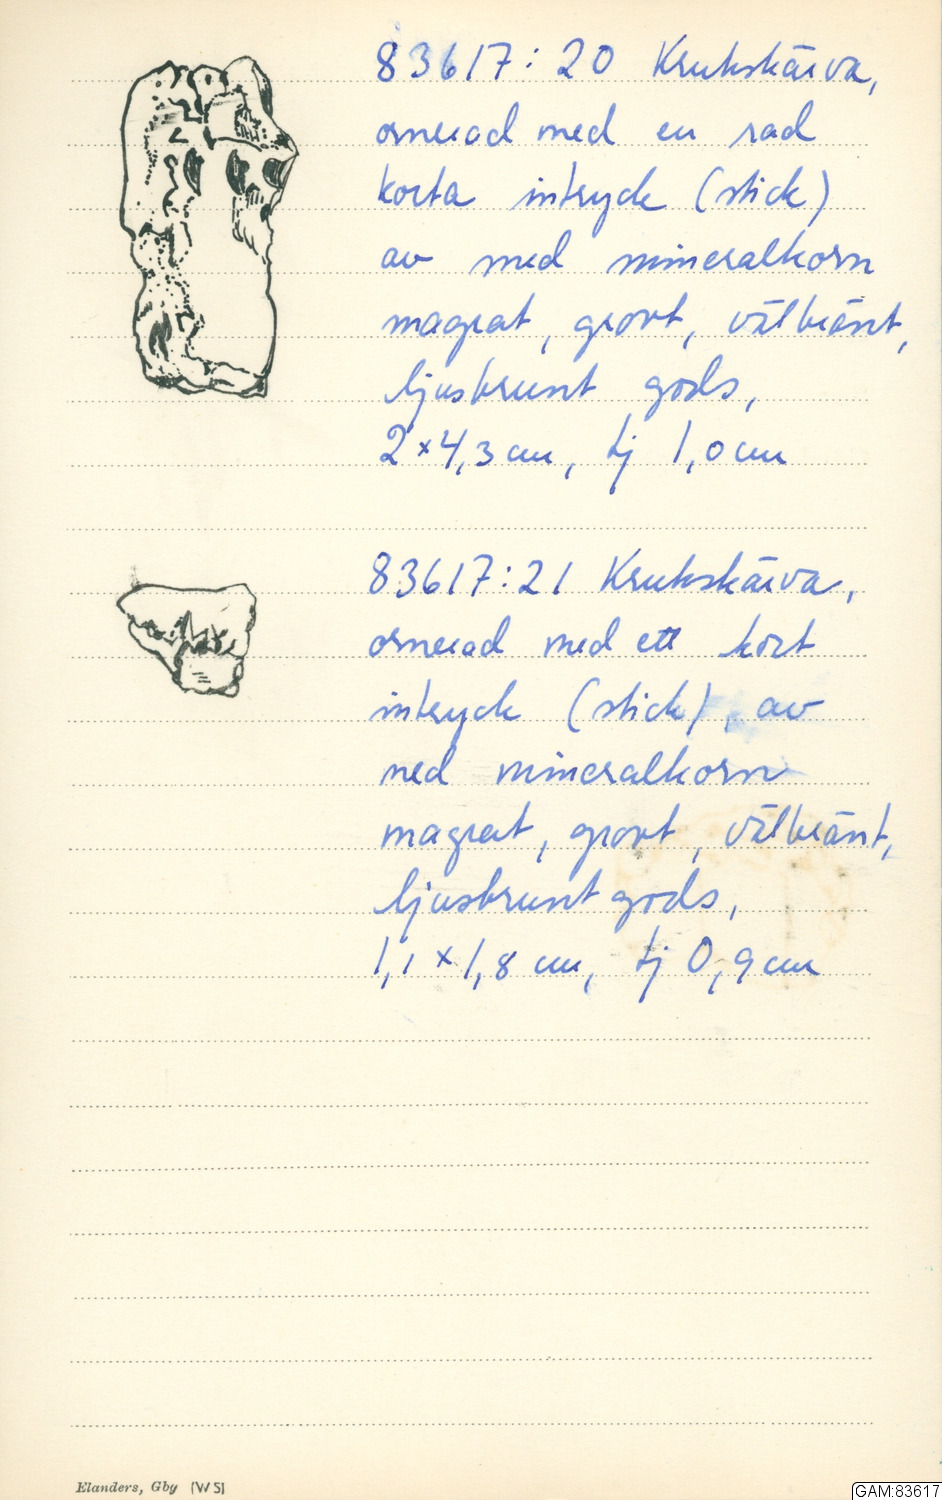 83617:20 Krukskärva,
ornerad med en rad
korta intryck (stick)
av med mineralkorn
magrat, grovt, välbränt,
ljusbrunt gods,
2×4,3 cm, tj 1,0 cm
83617:21 Krukskärva,
ornerad med ett kort
intryck (stick), av
med mineralkorn
magrat, grovt, välbränt,
ljusbrunt gods,
1,1×1,8 cm, tj 0,9 cm
Elanders, Gby (WS)
GAM:83617